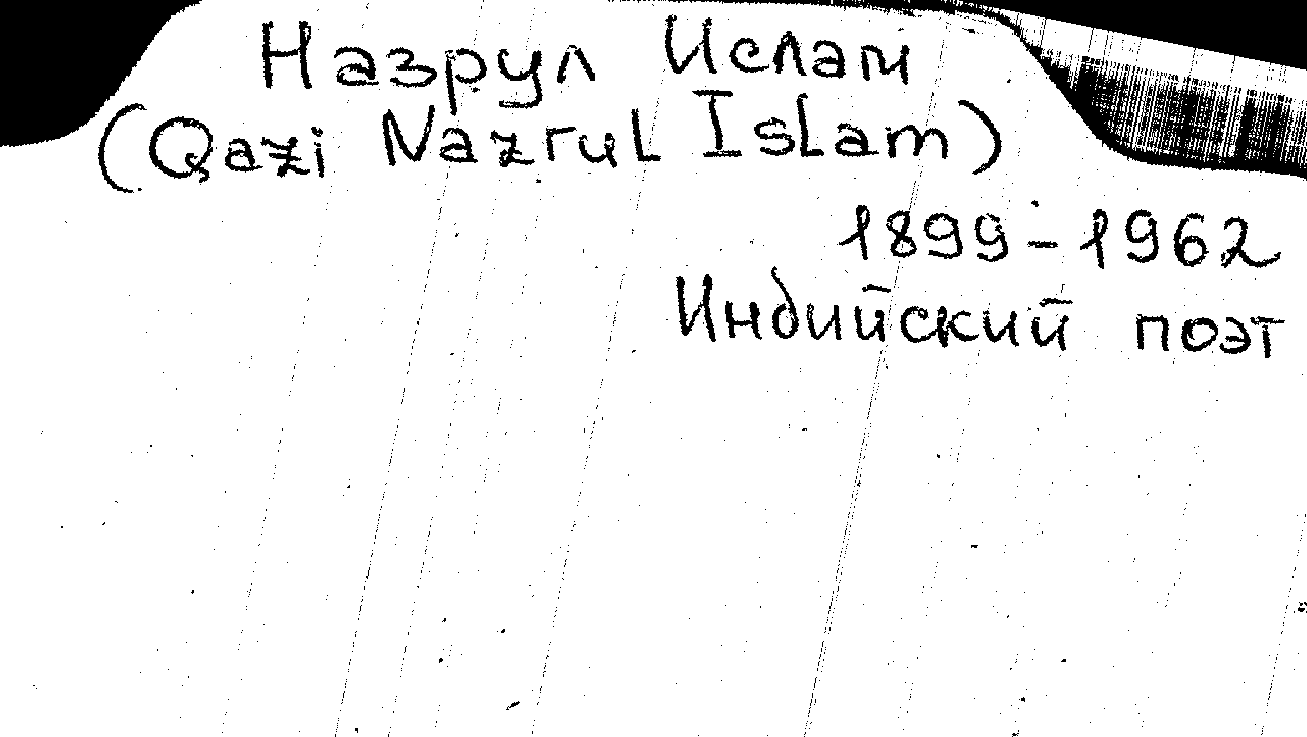 Назрул Ислам
(Qazi Nazrul Islam)
1899-1962
Индийский поэт